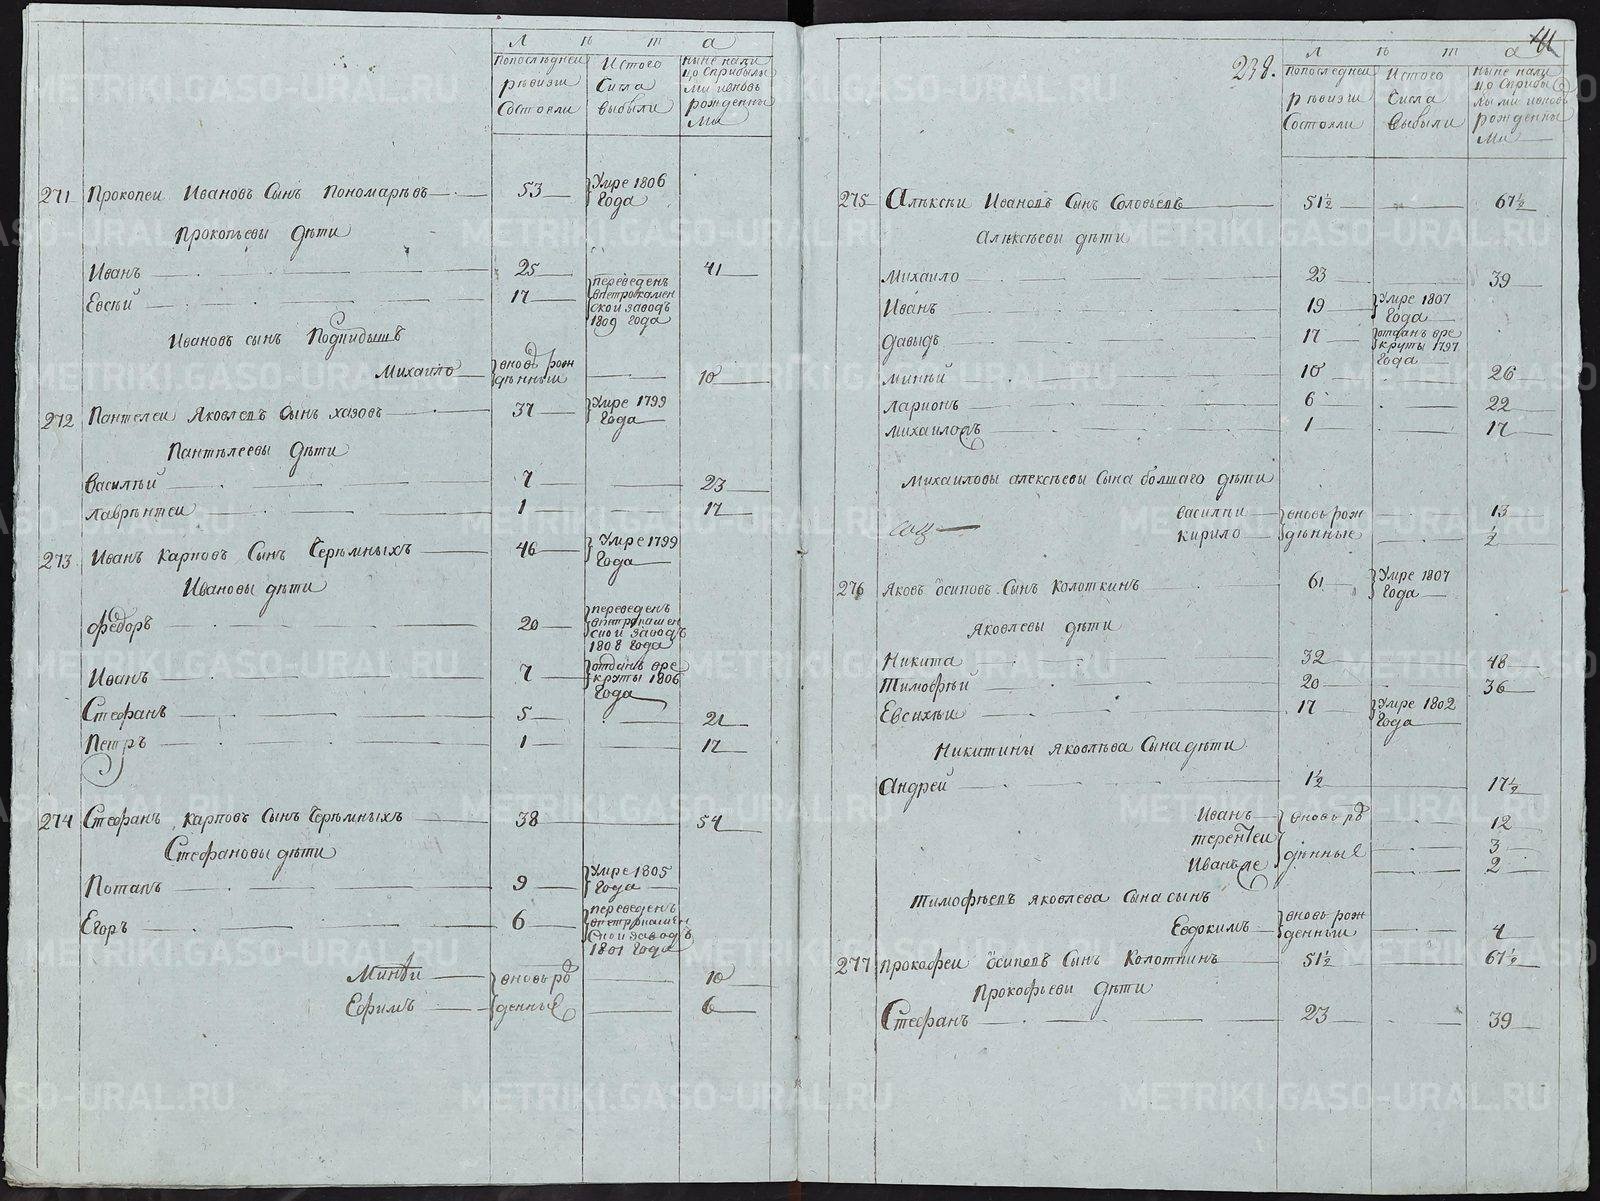 Л ѣ т а
попослѣдней ревизіи состояли
Истого Сисла выбыли
ныне нали цо Сприбылы ми ивновь рожденны ми
271 Прокопеи Ивановъ Сынъ Пономарѣвъ 53 Умре 1806 Года
Прокопьевы дѣти
Иванъ 25 41
Евсѣй 17 переведенъ впетрокамен ской заводъ 1809 года
Ивановъ сынъ
Михаило вновь рож дѣнный 10
272 Пантелеи Яковлевъ Сынъ хазовъ 37 Умре 1799 Года
Пантѣлеевы дѣти
Василѣй 7 23
Лаврѣнтеи 1 17
273 Иванъ Карповъ Сынъ Черѣмныхъ 46 Умре 1799 Года
Ивановы дѣти
Федоръ 20 переведенъ впетрокамен ской заводъ 1808 года
Иванъ 7 отданъ вре круты 1806 Года
Стефанъ 5 21
Петръ 1 17
274 Стефанъ Карповъ Сынъ Черѣмныхъ 38 54
Стефановы дѣти
Потапъ 9 Умре 1805 Года
Егоръ 6 переведенъ впетрокамен Ской заводъ 1807 Года
Минѣи вновь ро 10
Ефимъ денные 6
41
238.
Л ѣ т а
попоследней ревизіи Состояли
Истого Сисла выбыли
ныне нали цо Сприбы лыми ивновь рожденны ми
275 Алѣксѣи Ивановъ Сынъ Соловьевъ 51½ 67½
Алѣксѣевы дѣти
Михаило 23 39
Иванъ 19 Умре 1807 Года
Давыдъ 17 отданъ вре круты 1797 Года
Минѣй 10 26
Ларионъ 6 22
Михаило 1 17
Михаиловы алексѣевы Сына болшаго дѣти
василии вновь рож 13
кирило дѣнные ½
276 Яковъ Осиповъ Сынъ Колоткинъ 61 Умре 1807 Года
Яковлевы дѣти
Никита 32 48
Тимофѣй 20 36
Евсихѣи 17 Умре 1802 Года
Никитины яковлѣва Сына дѣти
Андрей 1½ 17½
Иванъ вновь ро 12
терентеи 3
Иванъ же дѣнные 2
Тимофѣевъ яковлева Сына сынъ
Евдокимъ вновь рож денный 4
277 Прокофеи Осиповъ Сынъ Колоткинъ 51½ 67½
Прокофьевы дѣти
Стефанъ 23 39
METRIKI.GASO-URAL.RU